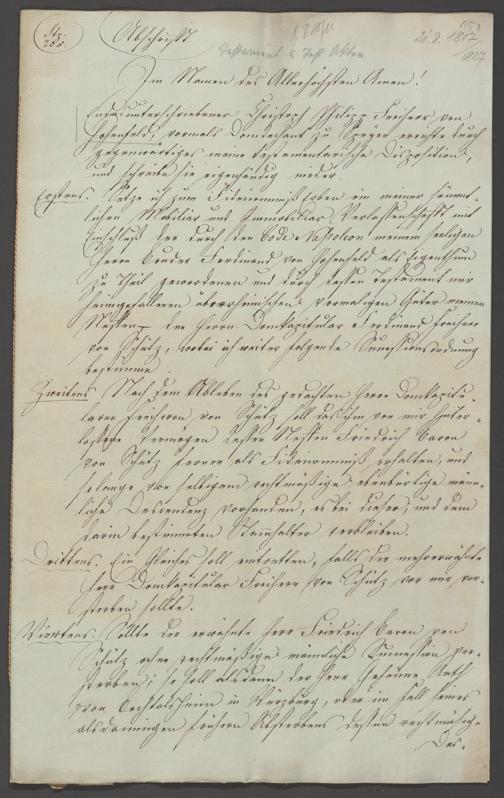 Abschrift
21.8.1817
Im Namen des Allerhöchsten Amen!
Endesunterschriebener Christoph Philipp Freiherr von
Hohenfeld, vormals Domdechant zu Speyer errichte durch
gegenwärtiges meine testamentarische Disposition,
und schreibe sie eigenhändig nieder.
Erstens. Setze ich zum Fideicommiß Erben in meiner sämmt-
lichen Mobiliar und Immobiliar Verlassenschaft mit
Einschluß der durch den Code Napoleon meinem seeligen
Herrn Bruder Ferdinand von Hohenfeld als Eigenthum
zu Theil gewordenen und durch dessen Testament mir
heimgefallenen überrheinischen vormaligen Güter meinen
Neffen, den Herrn Domkapitular Ferdinand Freiherr
von Schütz, wobei ich weiter folgende Successionsordnung
bestimme.
Zweitens. Nach dem Ableben des gedachten Herrn Domkapitu-
laren Freiherrn von Schütz soll das ihm von mir hinter-
lassene Vermögen dessen Neffen Friedrich Baron
von Schütz ferner als Fideicommiß erhalten, und
solange von selbigem rechtmäßige ebenbürtige männ-
liche Descendenz vorhanden, es bei dieser, und dem
darin bestimmten Stammhalter verbleiben.
Drittens. Ein Gleiches soll eintretten, falls der mehrerwähnte
Herr Domkapitular Freiherr von Schütz vor mir ver-
sterben sollte.
Viertens. Sollte der erwähnte Herr Friedrich Baron von
Schütz ohne rechtmäßige männliche Succession ver-
sterben; so soll alsdann der Herr Geheime Rath
von Bechtolsheim in Würzburg, oder im Fall seines
alsdannigen frühern Absterbens dessen rechtmäßig-
Des-